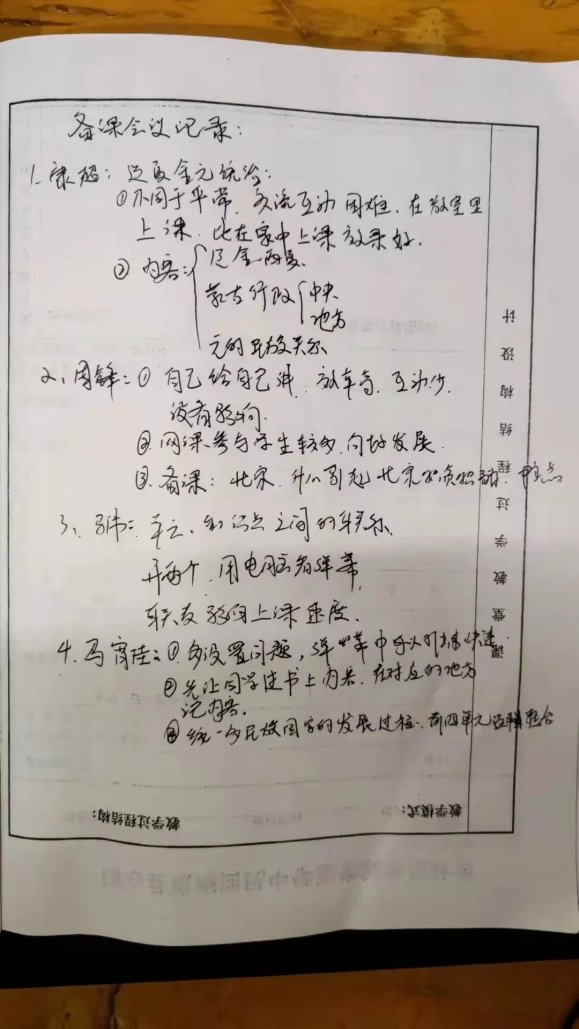 备课会议记录:
1. 康超: 辽夏金元统治:
①不同于平常, 交流互动困难. 在教室里
上课. 比在家中上课效果好.
② 内容: 辽金西夏.
蒙古行政 中央
地方
元的民族关系
2、周锋: ① 自己给自己讲. 效率高. 互动少.
没有影响.
②. 网课参与学生较多, 向好发展.
③. 备课: 北宋. 什么引起北宋 重点
3、 单元. 知识点之间的联系
开两个, 用电脑看弹幕,
联友影响上课速度.
4. 马 : ①. 多设置问题, 弹幕中可以 快速
② 先让同学读书上内容. 在对应的地方
记内容.
③ 统一多民族国家的发展过程. 前四单元 整合
课堂教学过程结构设计
教学模式:
教学过程结构: